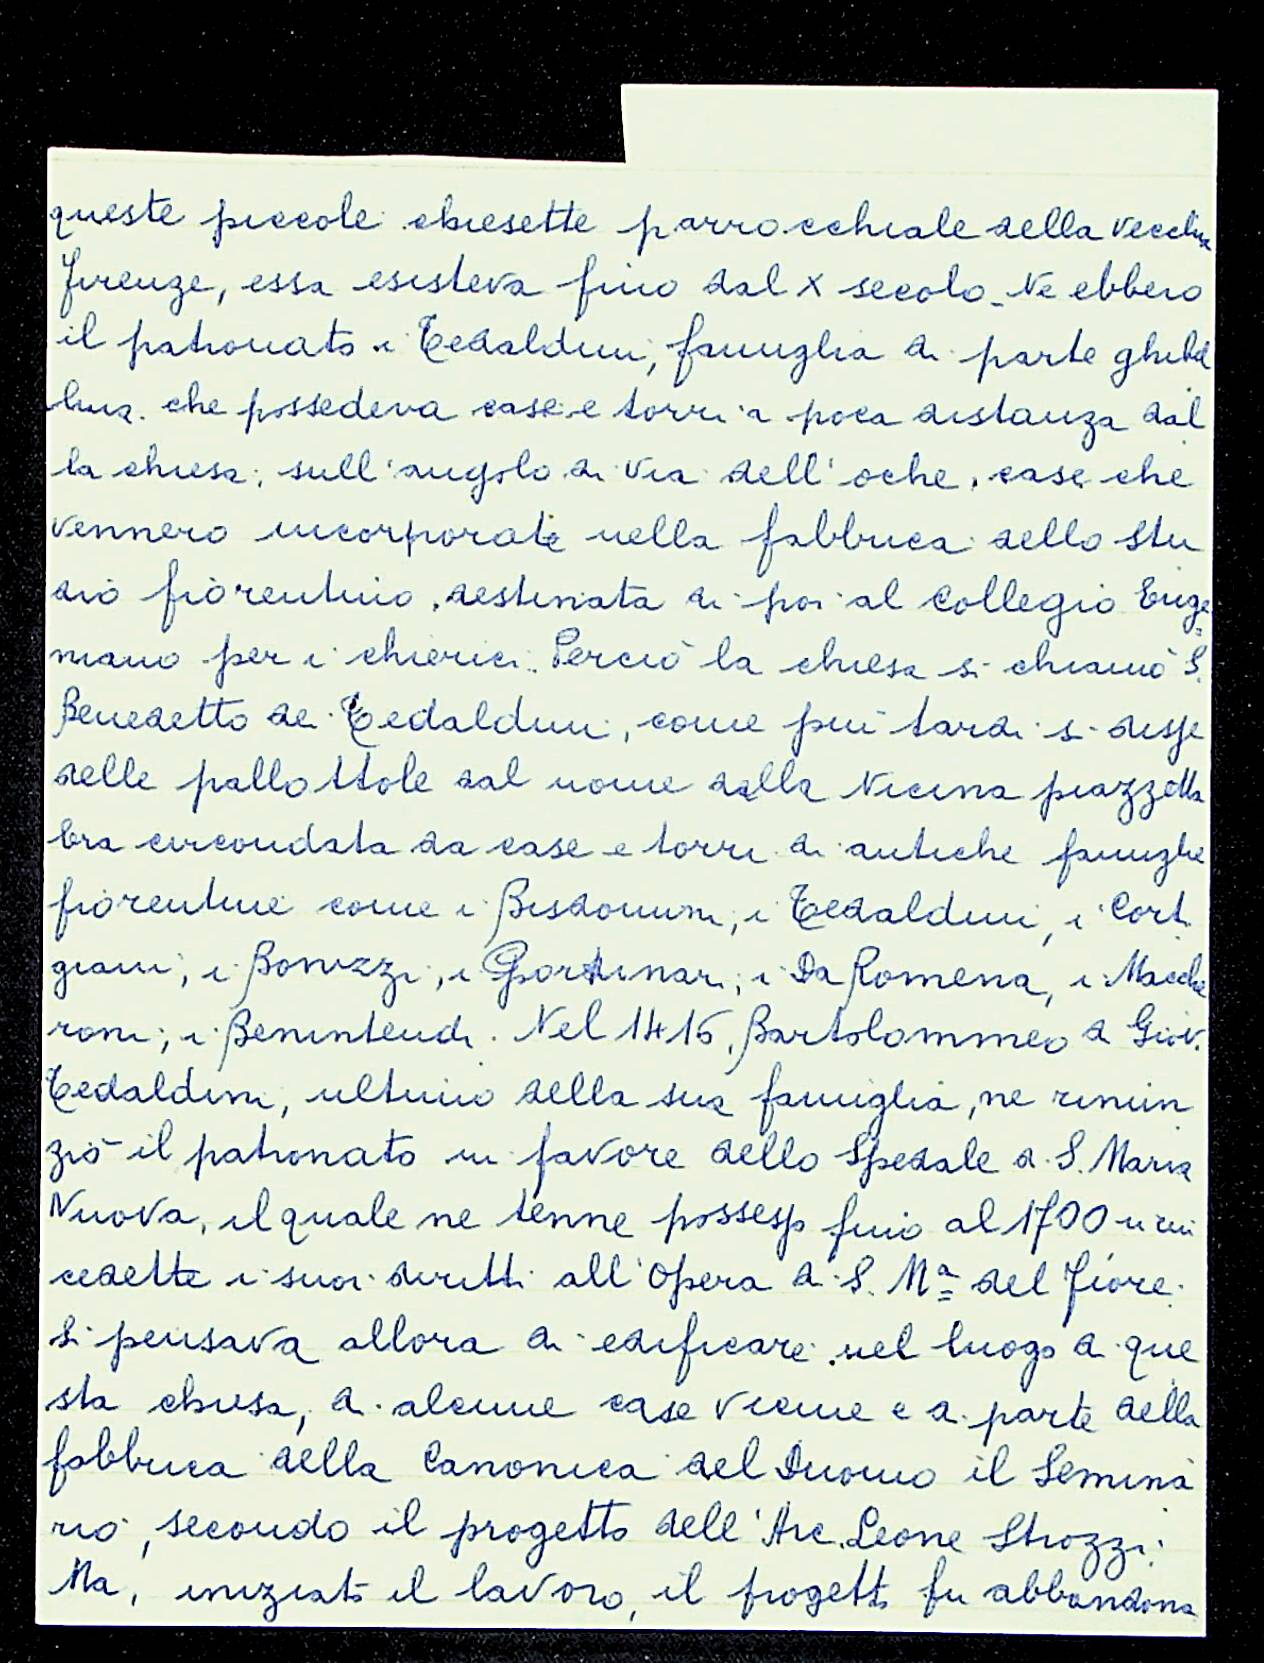 queste piccole chiesette parrocchiale della vecchia
Firenze, essa esisteva fino dal X secolo. Ne ebbero
il patronato i Tedaldini, famiglia di parte ghibel
lina che possedeva case e torri a poca distanza dal
la chiesa, sull'angolo di Via dell'oche, case che
vennero incorporate nella fabbrica dello Stu
dio fiorentino, destinata di poi al Collegio Euge=
niano per i chierici. Perciò la chiesa si chiamò S.
Benedetto dei Tedaldini, come più tardi si disse
delle pallottole dal nome della vicina piazzetta
Era circondata da case e torri di antiche famiglie
fiorentine come i Bisdomini, i Tedaldini, i Cort
giani, i Bonizzi, i Portinari, i Da Romena, i Macche
roni, i Benintendi. Nel 1415, Bartolommeo di Giov.
Tedaldini, ultimo della sua famiglia, ne rinun
ziò il patronato in favore dello Spedale di S. Maria
Nuova, il quale ne tenne possesso fino al 1700 in cui
cedette i suoi diritti all'Opera di S. Mª del Fiore.
Si pensava allora di edificare nel luogo di que
sta chiesa, di alcune case vicine e di parte della
fabbrica della Canonica del Duomo il Semina
rio, secondo il progetto dell'Arc. Leone Strozzi.
Ma, iniziato il lavoro, il progetto fu abbandona